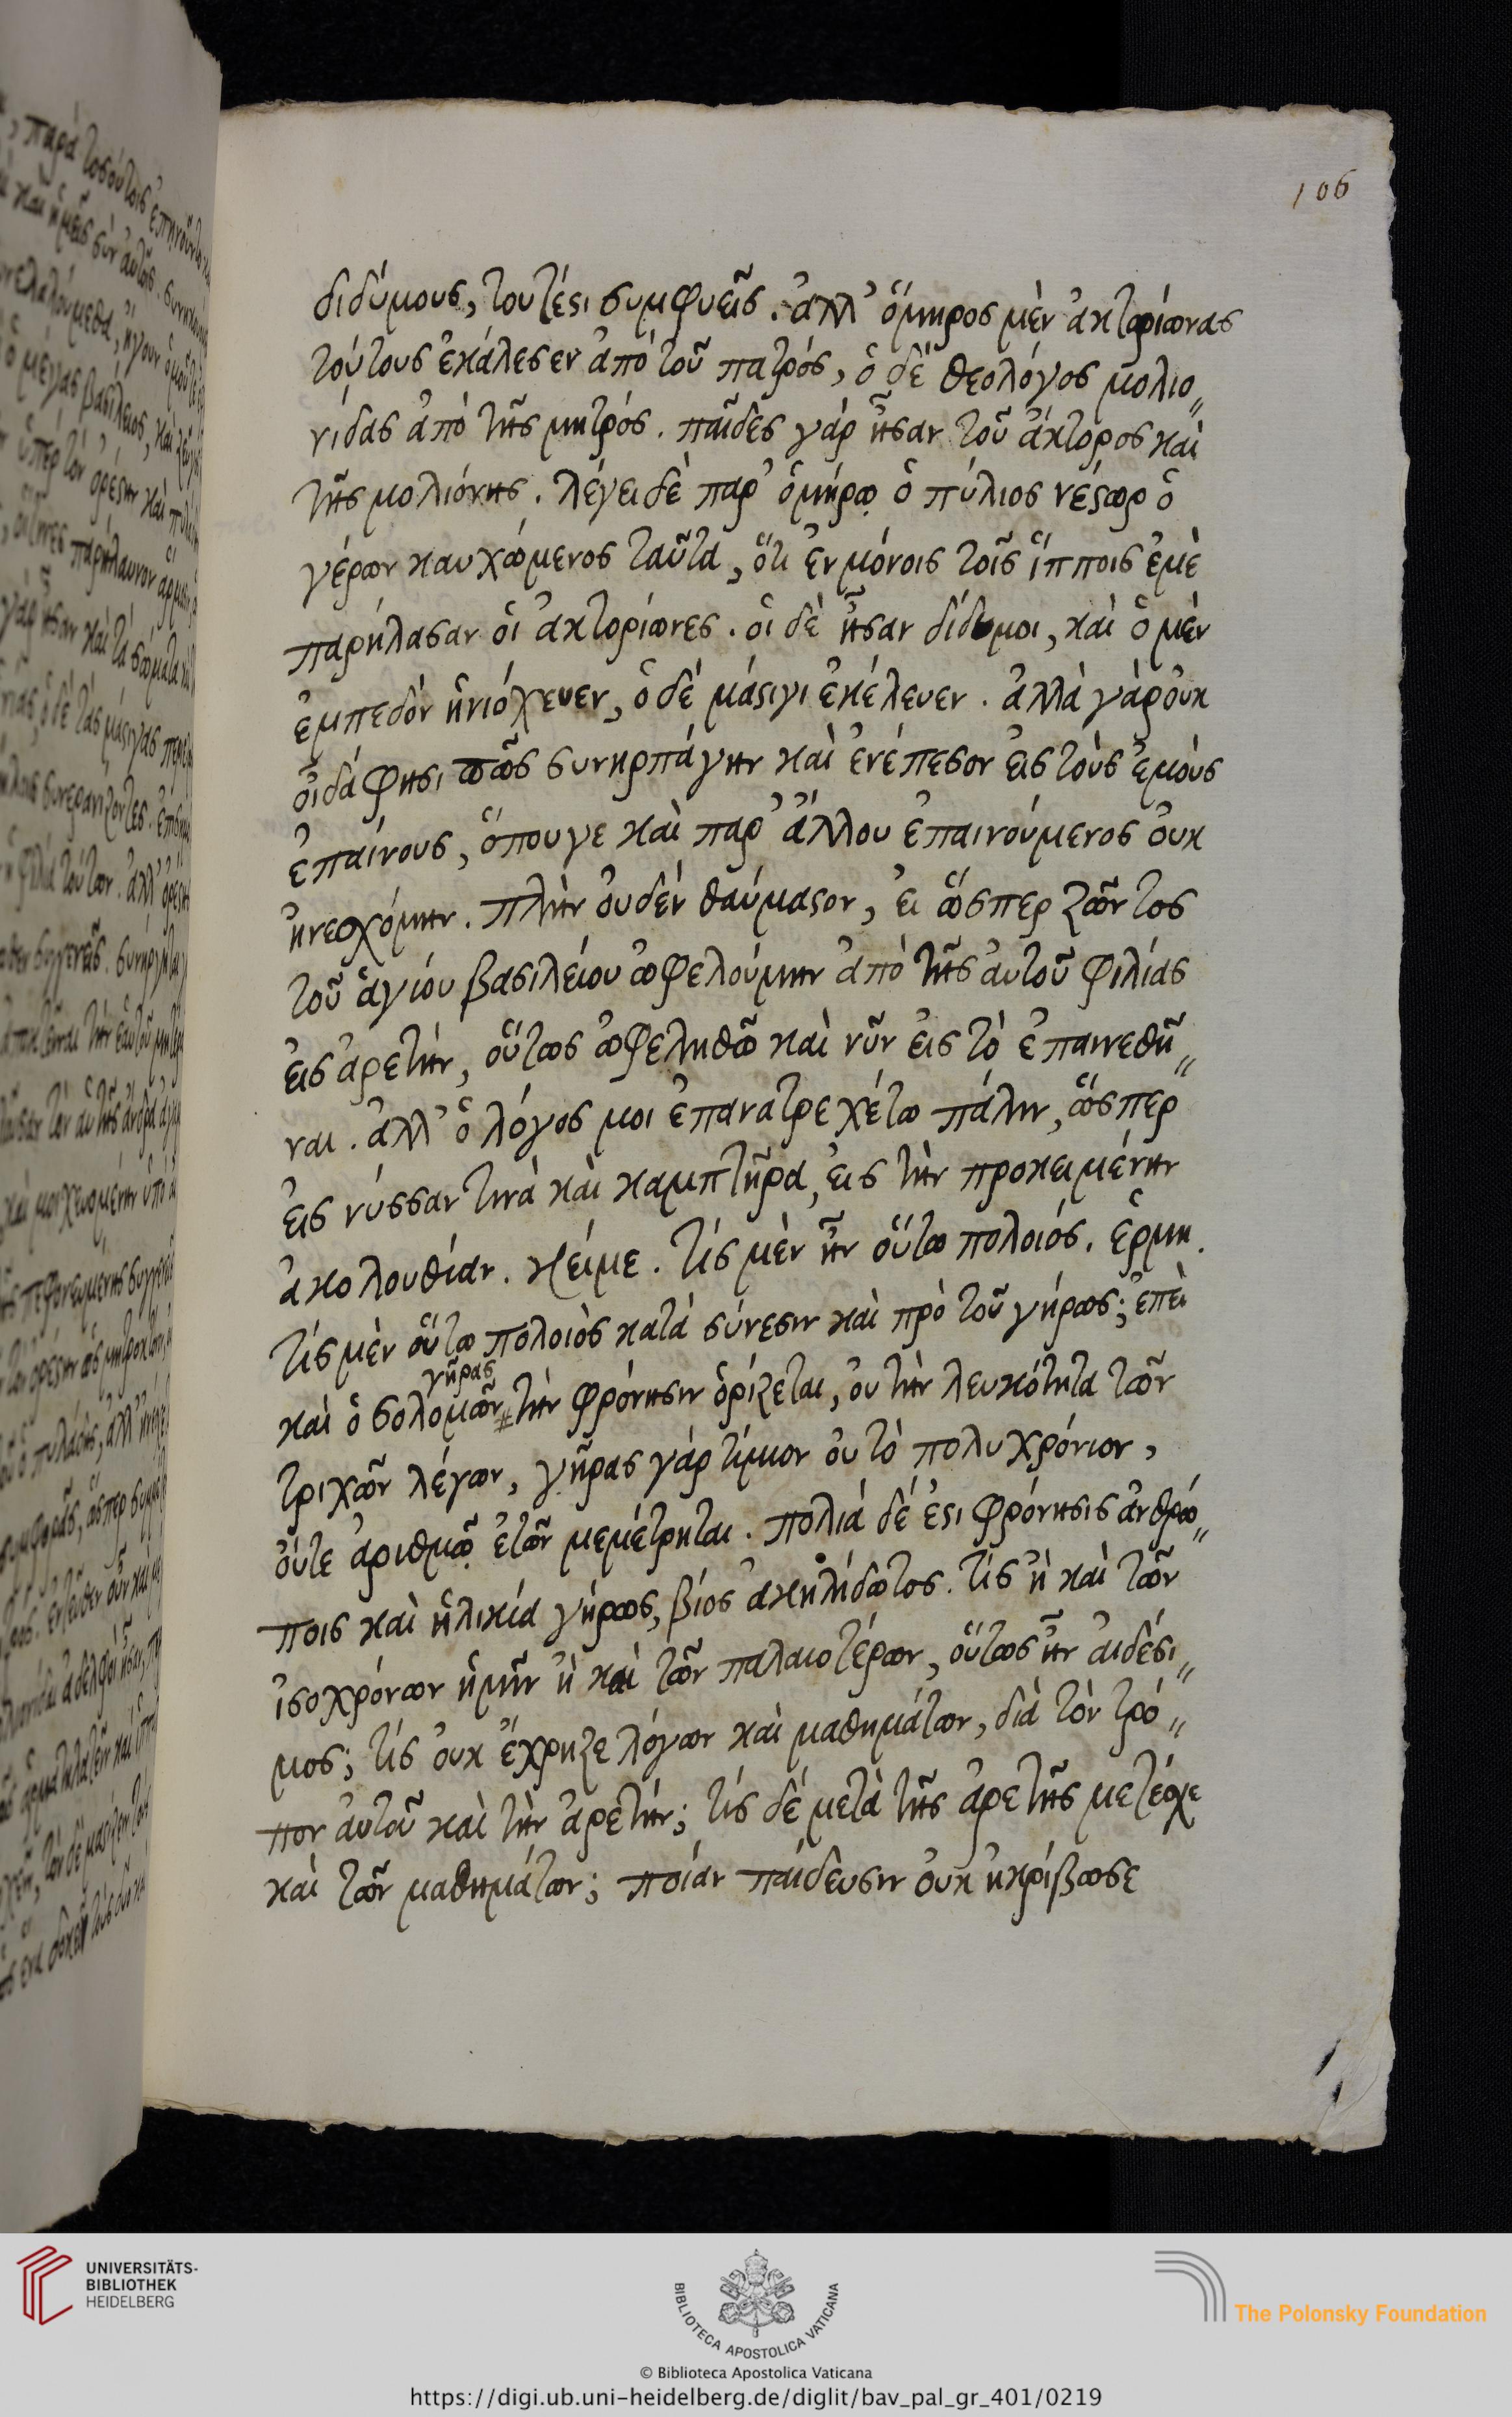 106
διδύμους, τουτέστι συμφυεῖς. ἀλλ' ὅμηρος μὲν ἀκτορίωνας
τούτους ἐκάλεσεν ἀπὸ τοῦ πατρός, ὁ δὲ θεολόγος μολιο„
νίδας ἀπὸ τῆς μητρός. παῖδες γὰρ ἦσαν τοῦ ἄκτορος καὶ
τῆς μολιόνης. λέγει δὲ παρ' ὁμήρῳ ὁ πύλιος νέστωρ ὁ
γέρων καυχώμενος ταῦτα, ὅτι ἐν μόνοις τοῖς ἵπποις ἐμὲ
παρήλασαν οἱ ἀκτορίωνες. οἱ δὲ ἦσαν δίδυμοι, καὶ ὁ μὲν
ἐμπεδὸν ἡνιόχευεν, ὁ δὲ μάστιγι ἐκέλευεν. ἀλλὰ γὰρ οὐκ
οἶδά φησι πῶς συνηρπάγην καὶ ἐνέπεσον εἰς τοὺς ἐμοὺς
ἐπαίνους, ὅπουγε καὶ παρ' ἄλλου ἐπαινούμενος οὐκ
ἠνεσχόμην. πλὴν οὐδὲν θαύμαστον, εἰ ὥσπερ ζῶντος
τοῦ ἁγίου βασιλείου ὠφελούμην ἀπὸ τῆς αὐτοῦ φιλίας
εἰς ἀρετήν, οὕτως ὠφεληθῶ καὶ νῦν εἰς τὸ ἐπαινεθῆ„
ναι. ἀλλ' ὁ λόγος μοι ἐπανατρεχέτω πάλιν, ὥσπερ
εἰς νύσσαν τινὰ καὶ καμπτῆρα, εἰς τὴν προκειμένην
ἀκολουθίαν. κείμε. τίς μὲν ἦν οὕτω πολοιός. ἑρμη.
τίς μὲν οὕτω πολοιὸς κατὰ σύνεσιν καὶ πρὸ τοῦ γήρως; ἐπεὶ
γῆρας
καὶ ὁ σολομῶν τὴν φρόνησιν ὁρίζεται, οὐ τὴν λευκότητα τῶν
τριχῶν λέγων, γῆρας γὰρ τίμιον οὐ τὸ πολυχρόνιον,
οὔτε ἀριθμῷ ἐτῶν μεμέτρηται. πολιὰ δέ ἐστι φρόνησις ἀνθρώ„
ποις καὶ ἡλικία γήρως, βίος ἀκηλίδωτος. τίς ἢ καὶ τῶν
ἰσοχρόνων ἡμῖν ἢ καὶ τῶν παλαιοτέρων, οὕτως ἦν αἰδέσι„
μος; τίς οὐκ ἔχρηζε λόγων καὶ μαθημάτων, διὰ τὸν τρό„
πον αὐτοῦ καὶ τὴν ἀρετήν; τίς δὲ μετὰ τῆς ἀρετῆς μετέσχε
καὶ τῶν μαθημάτων; ποίαν παίδευσιν οὐκ ἠκρίβωσε
UNIVERSITÄTS-
BIBLIOTHEK
HEIDELBERG
BIBLIOTECA APOSTOLICA VATICANA
The Polonsky Foundation
© Biblioteca Apostolica Vaticana
https://digi.ub.uni-heidelberg.de/diglit/bav_pal_gr_401/0219